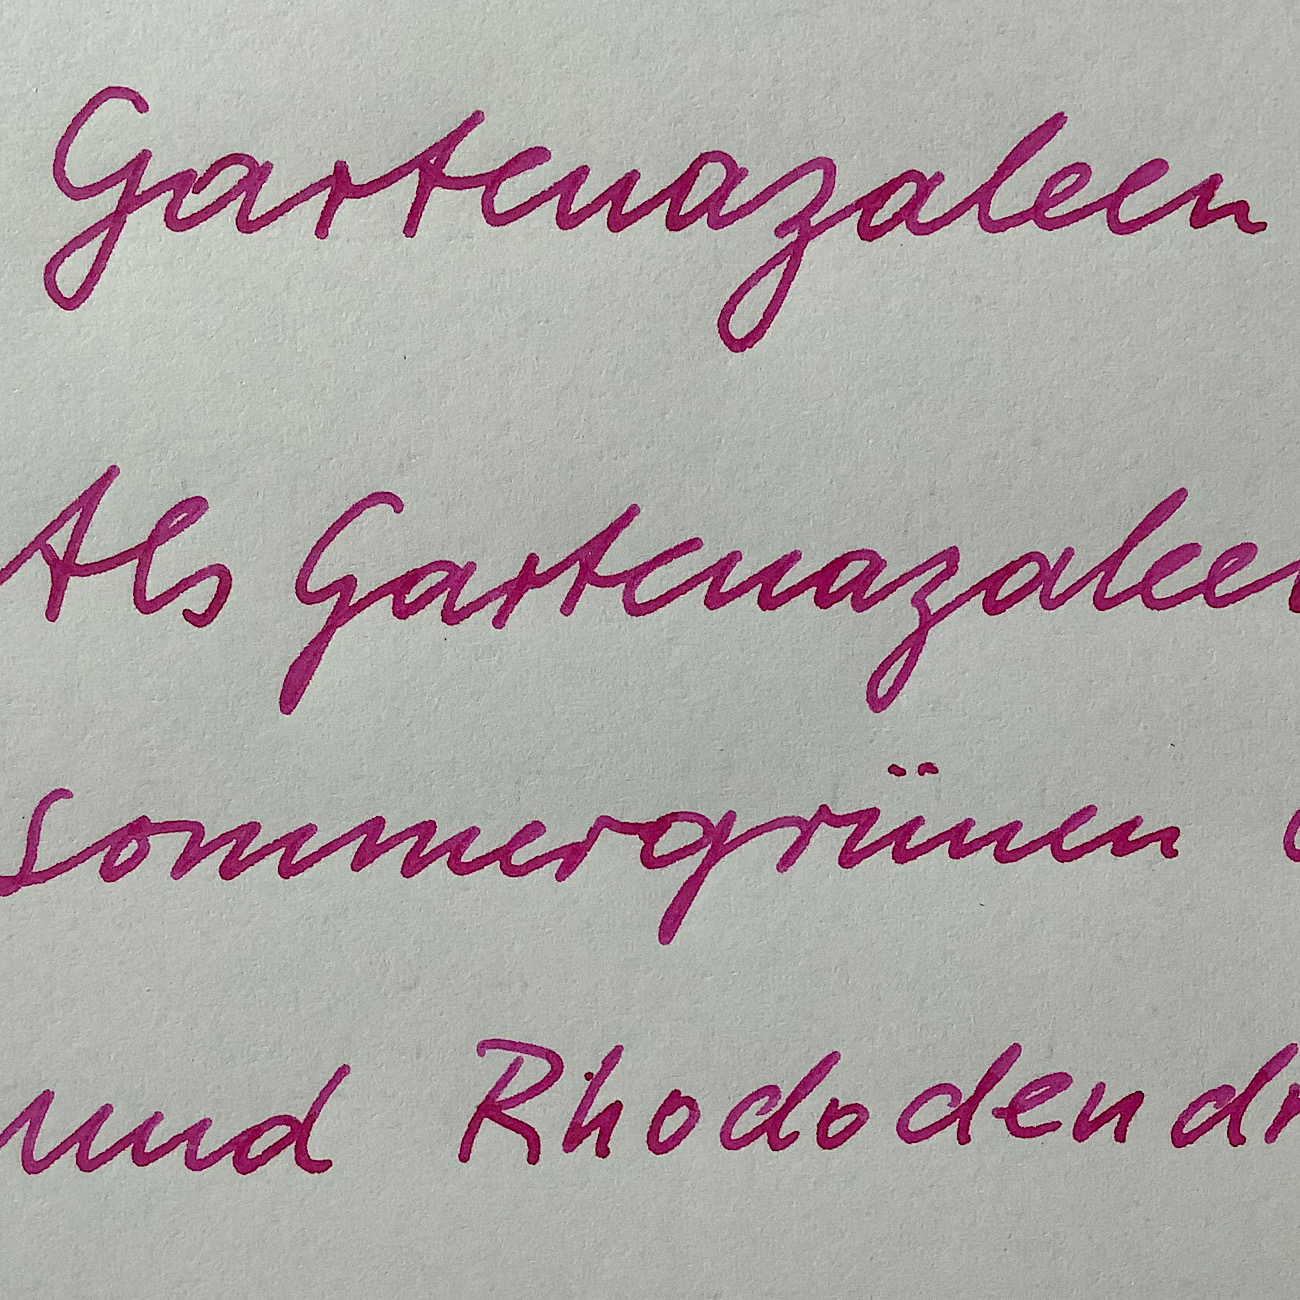 Gartenazaleen
Als Gartenazaleen
sommergrünen
und Rhododendr